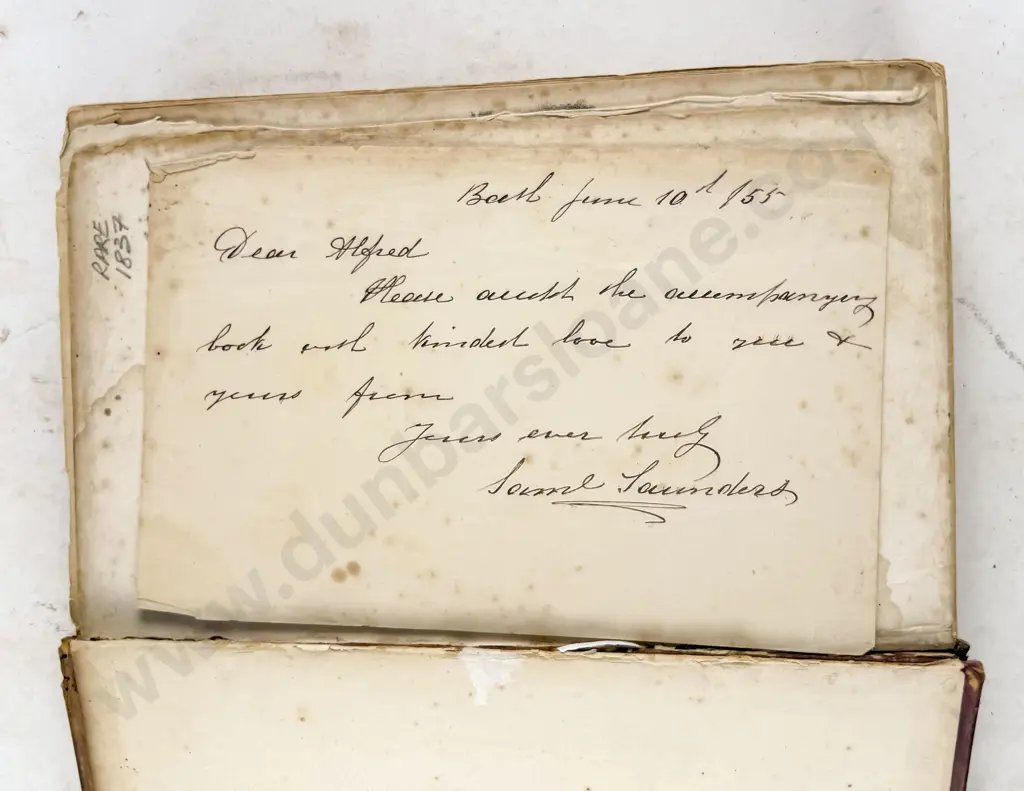 Bath June 10th /55
Dear Alfred
Please accept the accompanying
book with kindest love to you &
yours from
Yours ever truly
Saml Saunders
RARE
1837
www.dunbarsloane.co